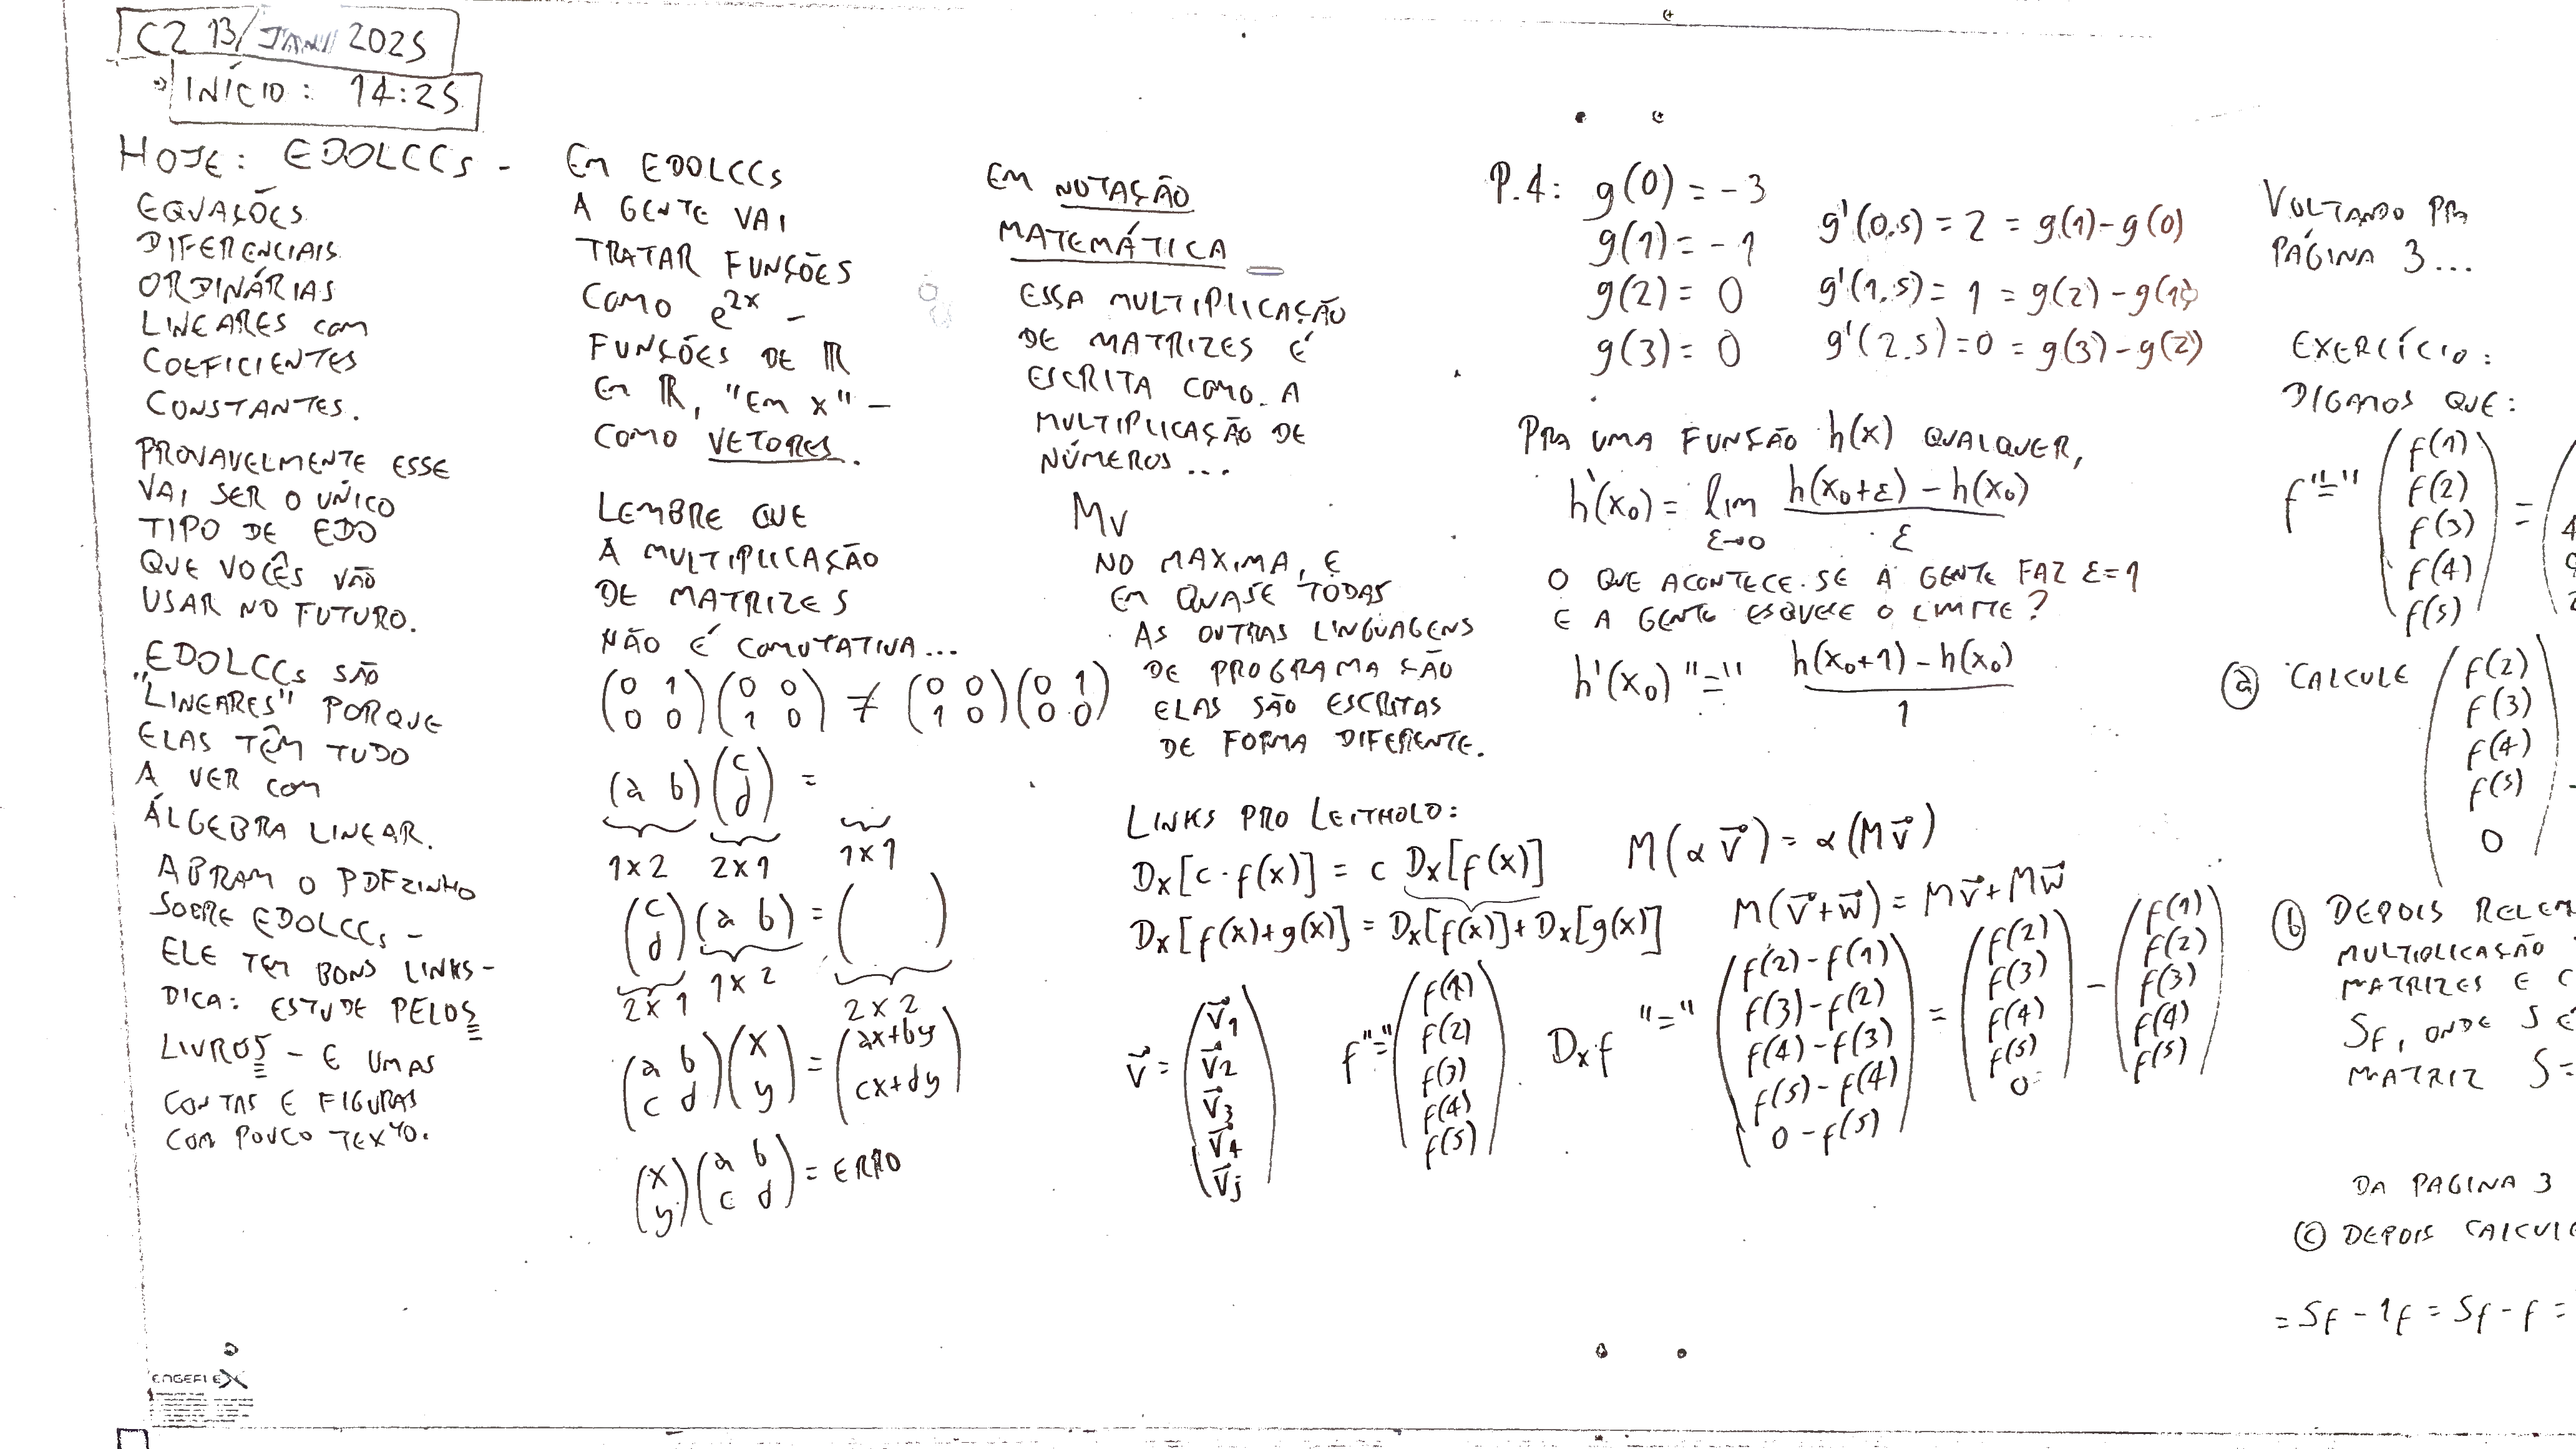 C2 13/JAN/2025
INÍCIO: 14:25
HOJE: EDOLCCs -
EQUAÇÕES
DIFERENCIAIS
ORDINÁRIAS
LINEARES COM
COEFICIENTES
CONSTANTES.
PROVAVELMENTE ESSE
VAI SER O ÚNICO
TIPO DE EDO
QUE VOCÊS VÃO
USAR NO FUTURO.
EDOLCCs SÃO
"LINEARES" PORQUE
ELAS TÊM TUDO
A VER COM
ÁLGEBRA LINEAR.
ABRAM O PDFZINHO
SOBRE EDOLCCs -
ELE TEM BONS LINKS -
DICA: ESTUDE PELOS
LIVROS - E UMAS
CONTAS E FIGURAS
COM POUCO TEXTO.
EM EDOLCCs
A GENTE VAI
TRATAR FUNÇÕES
COMO e^{2x} -
FUNÇÕES DE ℝ
EM ℝ, "EM x" -
COMO VETORES.
LEMBRE QUE
A MULTIPLICAÇÃO
DE MATRIZES
NÃO É COMUTATIVA...
(0 1; 0 0)(0 0; 1 0) ≠ (0 0; 1 0)(0 1; 0 0)
(a b)(c; d) =
1x2 2x1 1x1
(c; d)(a b) = ( )
2x1 1x2 2x2
(a b; c d)(x; y) = (ax+by; cx+dy)
(x; y)(a b; c d) = ERRO
EM NOTAÇÃO
MATEMÁTICA
ESSA MULTIPLICAÇÃO
DE MATRIZES É
ESCRITA COMO A
MULTIPLICAÇÃO DE
NÚMEROS...
Mv
NO MAXIMA, E
EM QUASE TODAS
AS OUTRAS LINGUAGENS
DE PROGRAMAÇÃO
ELAS SÃO ESCRITAS
DE FORMA DIFERENTE.
LINKS PRO LEITHOLD:
Dx[c·f(x)] = c Dx[f(x)]
Dx[f(x)+g(x)] = Dx[f(x)]+Dx[g(x)]
M(α v⃗) = α(M v⃗)
M(v⃗+w⃗) = Mv⃗+Mw⃗
v⃗ = (v⃗1; v⃗2; v⃗3; v⃗4; v⃗5)
f "=" (f(1); f(2); f(3); f(4); f(5))
Dx f "=" (f(2)-f(1); f(3)-f(2); f(4)-f(3); f(5)-f(4); 0-f(5)) = (f(2); f(3); f(4); f(5); 0) - (f(1); f(2); f(3); f(4); f(5))
P.4: g(0) = -3
g(1) = -1
g(2) = 0
g(3) = 0
g'(0.5) = 2 = g(1)-g(0)
g'(1.5) = 1 = g(2)-g(1)
g'(2.5) = 0 = g(3)-g(2)
PRA UMA FUNÇÃO h(x) QUALQUER,
h'(x0) = lim ε→0 (h(x0+ε) - h(x0))/ε
O QUE ACONTECE SE A GENTE FAZ ε=1
E A GENTE ESQUECE O LIMITE?
h'(x0) "=" (h(x0+1) - h(x0))/1
VOLTANDO PRA
PÁGINA 3...
EXERCÍCIO:
DIGAMOS QUE:
f "=" (f(1); f(2); f(3); f(4); f(5)) = (
ⓐ CALCULE (f(2); f(3); f(4); f(5); 0)
ⓑ DEPOIS RELEM
MULTIPLICAÇÃO
MATRIZES E C
Sf, ONDE S É
MATRIZ S=
DA PAGINA 3
ⓒ DEPOIS CALCULE
= Sf - 1f = Sf - f =
ENGEFLEX